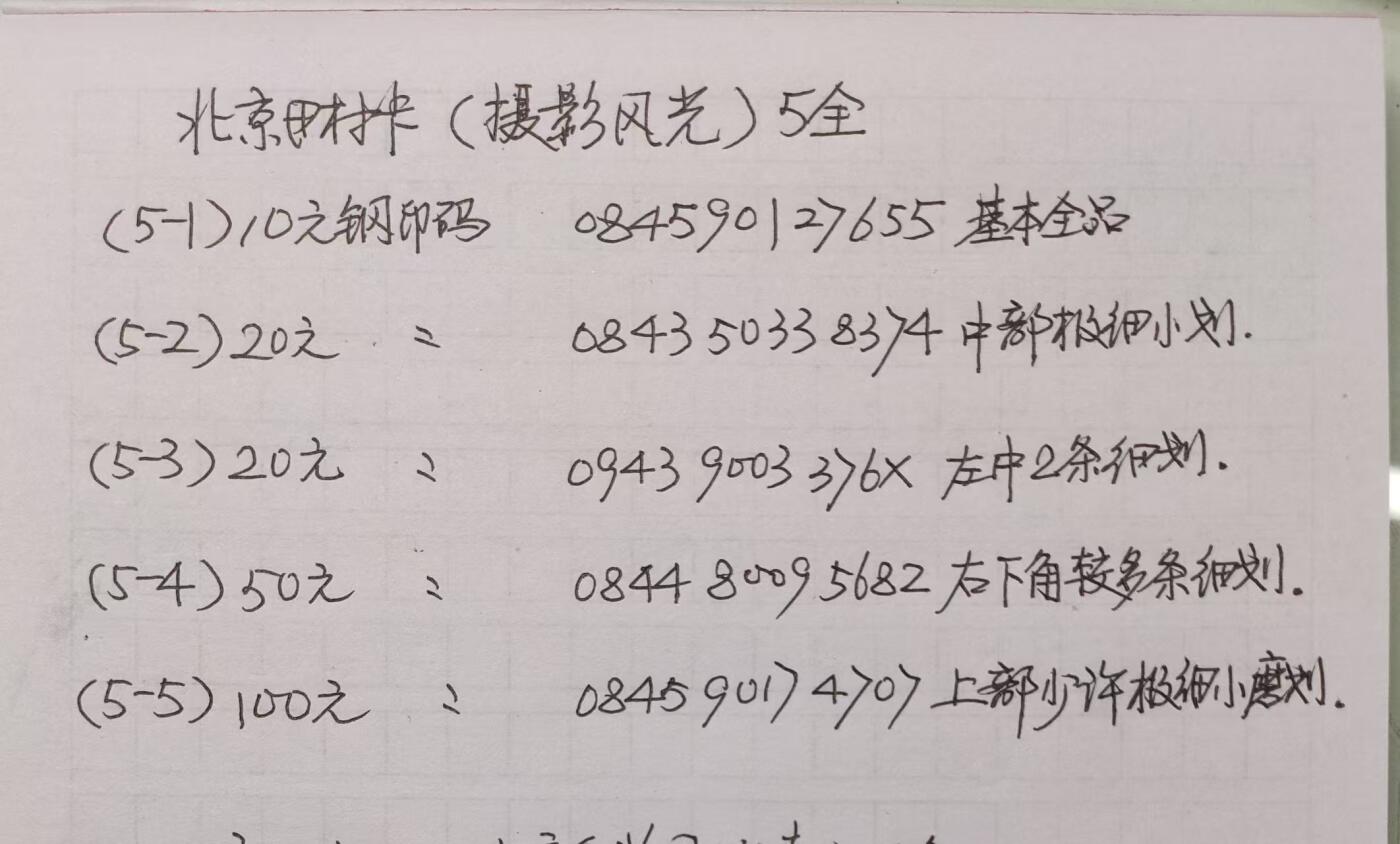 北京田村卡（摄影风光）5全
(5-1)10元钢印码 084590127655 基本全品
(5-2)20元 〃 084350338374 中部极细小划.
(5-3)20元 〃 09439003376X 左中2条细划.
(5-4)50元 〃 084480095682 右下角较多条细划.
(5-5)100元 〃 084590174707 上部少许极细小磨划.